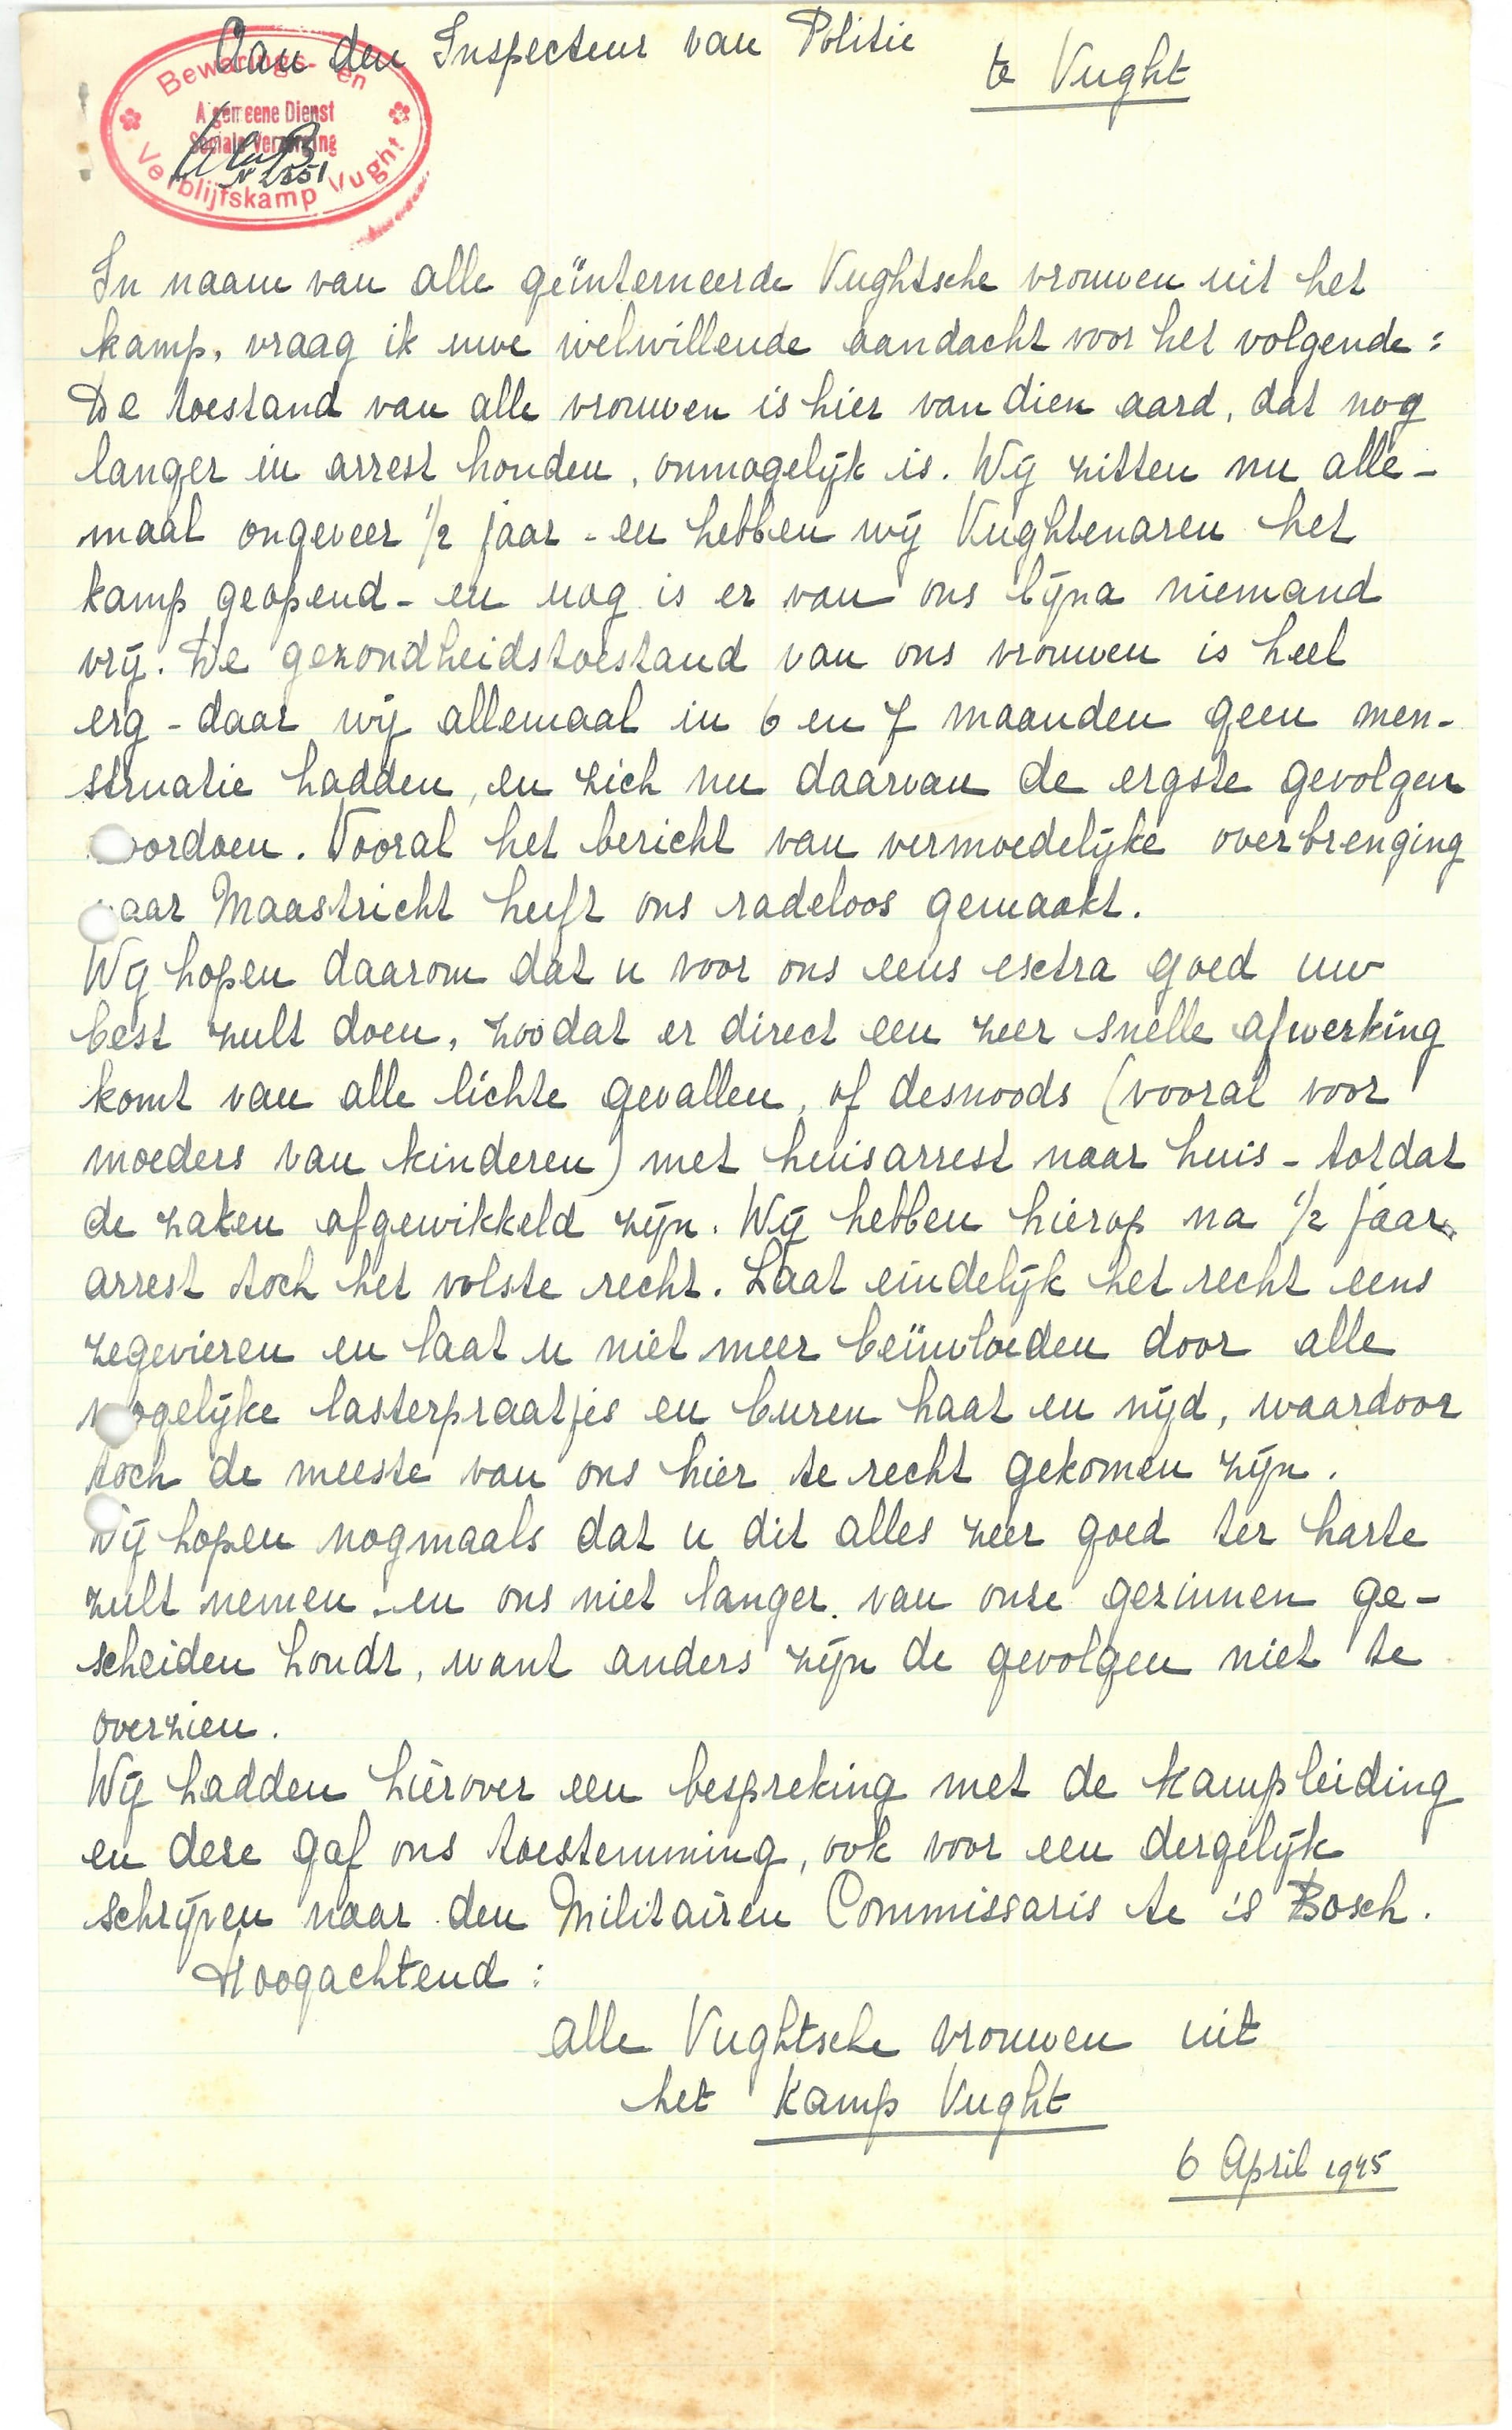 Aan den Inspecteur van Politie
te Vught
Bewarings- en
Algemeene Dienst
Sociale Verzorging
N 2551
Verblijfskamp Vught
In naam van alle geïnterneerde Vughtsche vrouwen uit het
kamp, vraag ik uwe welwillende aandacht voor het volgende:
De toestand van alle vrouwen is hier van dien aard, dat nog
langer in arrest houden, onmogelijk is. Wij zitten nu alle-
maal ongeveer 1/2 jaar - en hebben wij Vughtenaren het
kamp geopend - en nog is er van ons bijna niemand
vrij. De gezondheidstoestand van ons vrouwen is heel
erg - daar wij allemaal in 6 en 7 maanden geen men-
struatie hadden, en zich nu daarvan de ergste gevolgen
voordoen. Vooral het bericht van vermoedelijke overbrenging
naar Maastricht heeft ons radeloos gemaakt.
Wij hopen daarom dat u voor ons eens esctra goed uw
best zult doen, zoodat er direct een zeer snelle afwerking
komt van alle lichte gevallen, of desnoods (vooral voor
moeders van kinderen) met huisarrest naar huis - totdat
de zaken afgewikkeld zijn. Wij hebben hierop na 1/2 jaar
arrest toch het volste recht. Laat eindelijk het recht eens
zegevieren en laat u niet meer beïnvloeden door alle
mogelijke lasterpraatjes en buren haat en nijd, waardoor
toch de meeste van ons hier te recht gekomen zijn.
Wij hopen nogmaals dat u dit alles zeer goed ter harte
zult nemen - en ons niet langer van onze gezinnen ge-
scheiden houdt, want anders zijn de gevolgen niet te
overzien.
Wij hadden hierover een bespreking met de kampleiding
en deze gaf ons toestemming, ook voor een dergelijk
schrijven naar den Militairen Commissaris te 's Bosch.
Hoogachtend:
alle Vughtsche vrouwen uit
het Kamp Vught
6 April 1945